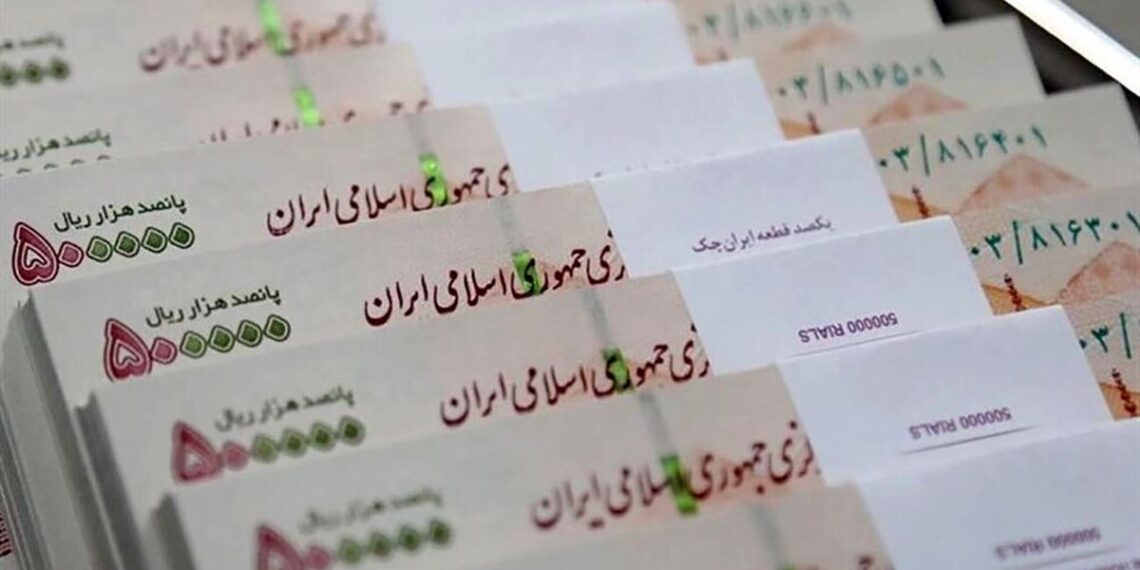 جمهوری اسلامی ایران
۰۳/۸۱۶
پانصد هزار ریال
۰۳/۸۱۶۵۰۱
پانصد هزار ریال
۵۰۰۰۰۰
جمهوری اسلامی ایران
یکصد قطعه ایران چک
۰۳/۸۱۶۴۰۱
پانصد هزار ریال
۵۰۰۰۰۰
جمهوری اسلامی ایران
500000 RIALS
۰۳/۸۱۶۳۰۱
پانصد هزار ریال
۵۰۰۰۰۰
جمهوری اسلامی ایران
500000 RIALS
۰۳/
پانصد هزار ریال
۵۰۰۰۰۰
جمهوری اسلامی ایران
500000 RIALS